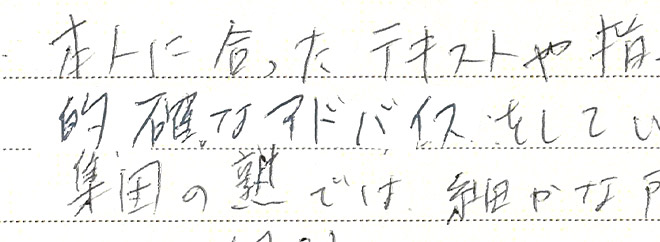 本人に合ったテキストや指
的確なアドバイスをしてい
集団の塾では細かな